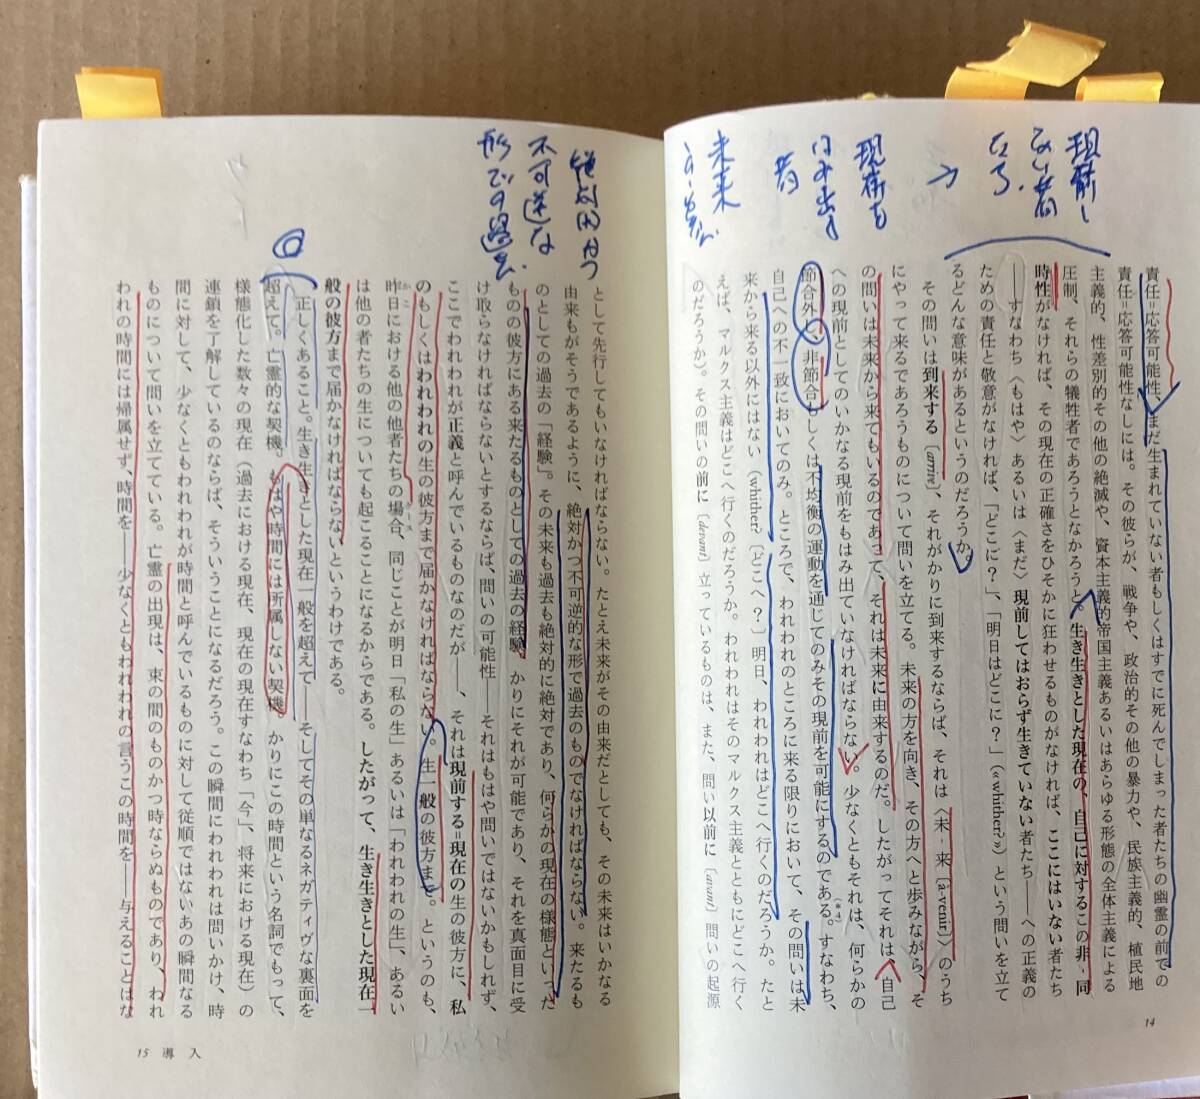 現前し
ない者
たち
現前を
はみ出す
者
未来
責任=応答可能性、まだ生まれていない者もしくはすでに死んでしまった者たちの幽霊の前での
責任=応答可能性なしには。その彼らが、戦争や、政治的その他の暴力や、民族主義的、植民地
主義的、性差別的その他の絶滅や、資本主義的帝国主義あるいはあらゆる形態の全体主義による
圧制、それらの犠牲者であろうとなかろうと。生き生きとした現在の、自己に対するこの非-同
時性がなければ、その現在の正確さをひそかに狂わせるものがなければ、ここにはいない者たち
――すなわち〈もはや〉あるいは〈まだ〉現前してはおらず生きていない者たち――への正義の
ための責任と敬意がなければ、「どこに?」、「明日はどこに?」(«whither?»)という問いを立て
るどんな意味があるというのだろうか。
その問いは到来する〔arrive〕、それがかりに到来するならば、それは〈未‐来〔à-venir〕〉のうち
にやって来るであろうものについて問いを立てる。未来の方を向き、その方へと歩みながら、そ
の問いは未来から来てもいるのであって、それは未来に由来するのだ。したがってそれは、自己
への現前としてのいかなる現前をもはみ出ていなければならない。少なくともそれは、何らかの
節合外し、非節合もしくは不均衡の運動を通じてのみその現前を可能にするのである。(*4)すなわち、
自己への不一致においてのみ。ところで、われわれのところに来る限りにおいて、その問いは未
来から来る以外にはない(whither?〔どこへ?〕明日、われわれはどこへ行くのだろうか。たと
えば、マルクス主義はどこへ行くのだろうか。われわれはそのマルクス主義とともにどこへ行く
のだろうか)。その問いの前に〔devant〕立っているものは、また、問い以前に〔avant〕問いの起源
14
絶対的かつ
不可逆な
形での過去
として先行してもいなければならない。たとえ未来がその由来だとしても、その未来はいかなる
由来もがそうであるように、絶対かつ不可逆的な形で過去のものでなければならない。来たるもも
のとしての過去の「経験」。その未来も過去も絶対的に絶対であり、何らかの現在の様態といった
ものの彼方にある来たるものとしての過去の経験。かりにそれが可能であり、それを真面目に受
け取らなければならないとするならば、問いの可能性――それはもはや問いではないかもしれず、
ここでわれわれが正義と呼んでいるものなのだが――、それは現前する=現在の生の彼方に、私
のもしくはわれわれの生の彼方まで届かなければならない。生一般の彼方まで。というのも、
昨日における他の他者たちの場合、同じことが明日「私の生」あるいは「われわれの生」、あるい
は他の者たちの生についても起こることになるからである。したがって、生き生きとした現在一
般の彼方まで届かなければならないというわけである。
正しくあること。生き生きとした現在一般を超えて――そしてその単なるネガティヴな裏面を
超えて。亡霊的な契機、もはや時間には所属しない契機。かりにこの時間という名詞でもって、
様態化した数々の現在(過去における現在、現在の現在すなわち「今」、将来における現在)の
連鎖を了解しているのならば、そういうことになるだろう。この瞬間にわれわれは問いかけ、時
間に対して、少なくともわれわれが時間と呼んでいるものに対して従順ではないあの瞬間なる
ものについて問いを立てている。亡霊の出現は、束の間のものかつ時ならぬものであり、われ
われの時間には帰属せず、時間を――少なくともわれわれの言うこの時間を――与えることはな
15 導入